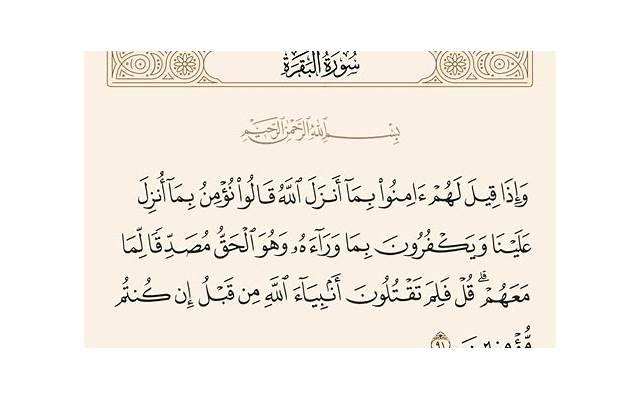 سُورَةُ الْبَقَرَةِ
بِسْمِ اللَّهِ الرَّحْمَٰنِ الرَّحِيمِ
وَإِذَا قِيلَ لَهُمْ ءَامِنُوا۟ بِمَآ أَنزَلَ ٱللَّهُ قَالُوا۟ نُؤْمِنُ بِمَآ أُنزِلَ
عَلَيْنَا وَيَكْفُرُونَ بِمَا وَرَآءَهُۥ وَهُوَ ٱلْحَقُّ مُصَدِّقًا لِّمَا
مَعَهُمْ ۗ قُلْ فَلِمَ تَقْتُلُونَ أَنۢبِيَآءَ ٱللَّهِ مِن قَبْلُ إِن كُنتُم
مُّؤْمِنِينَ ٩١